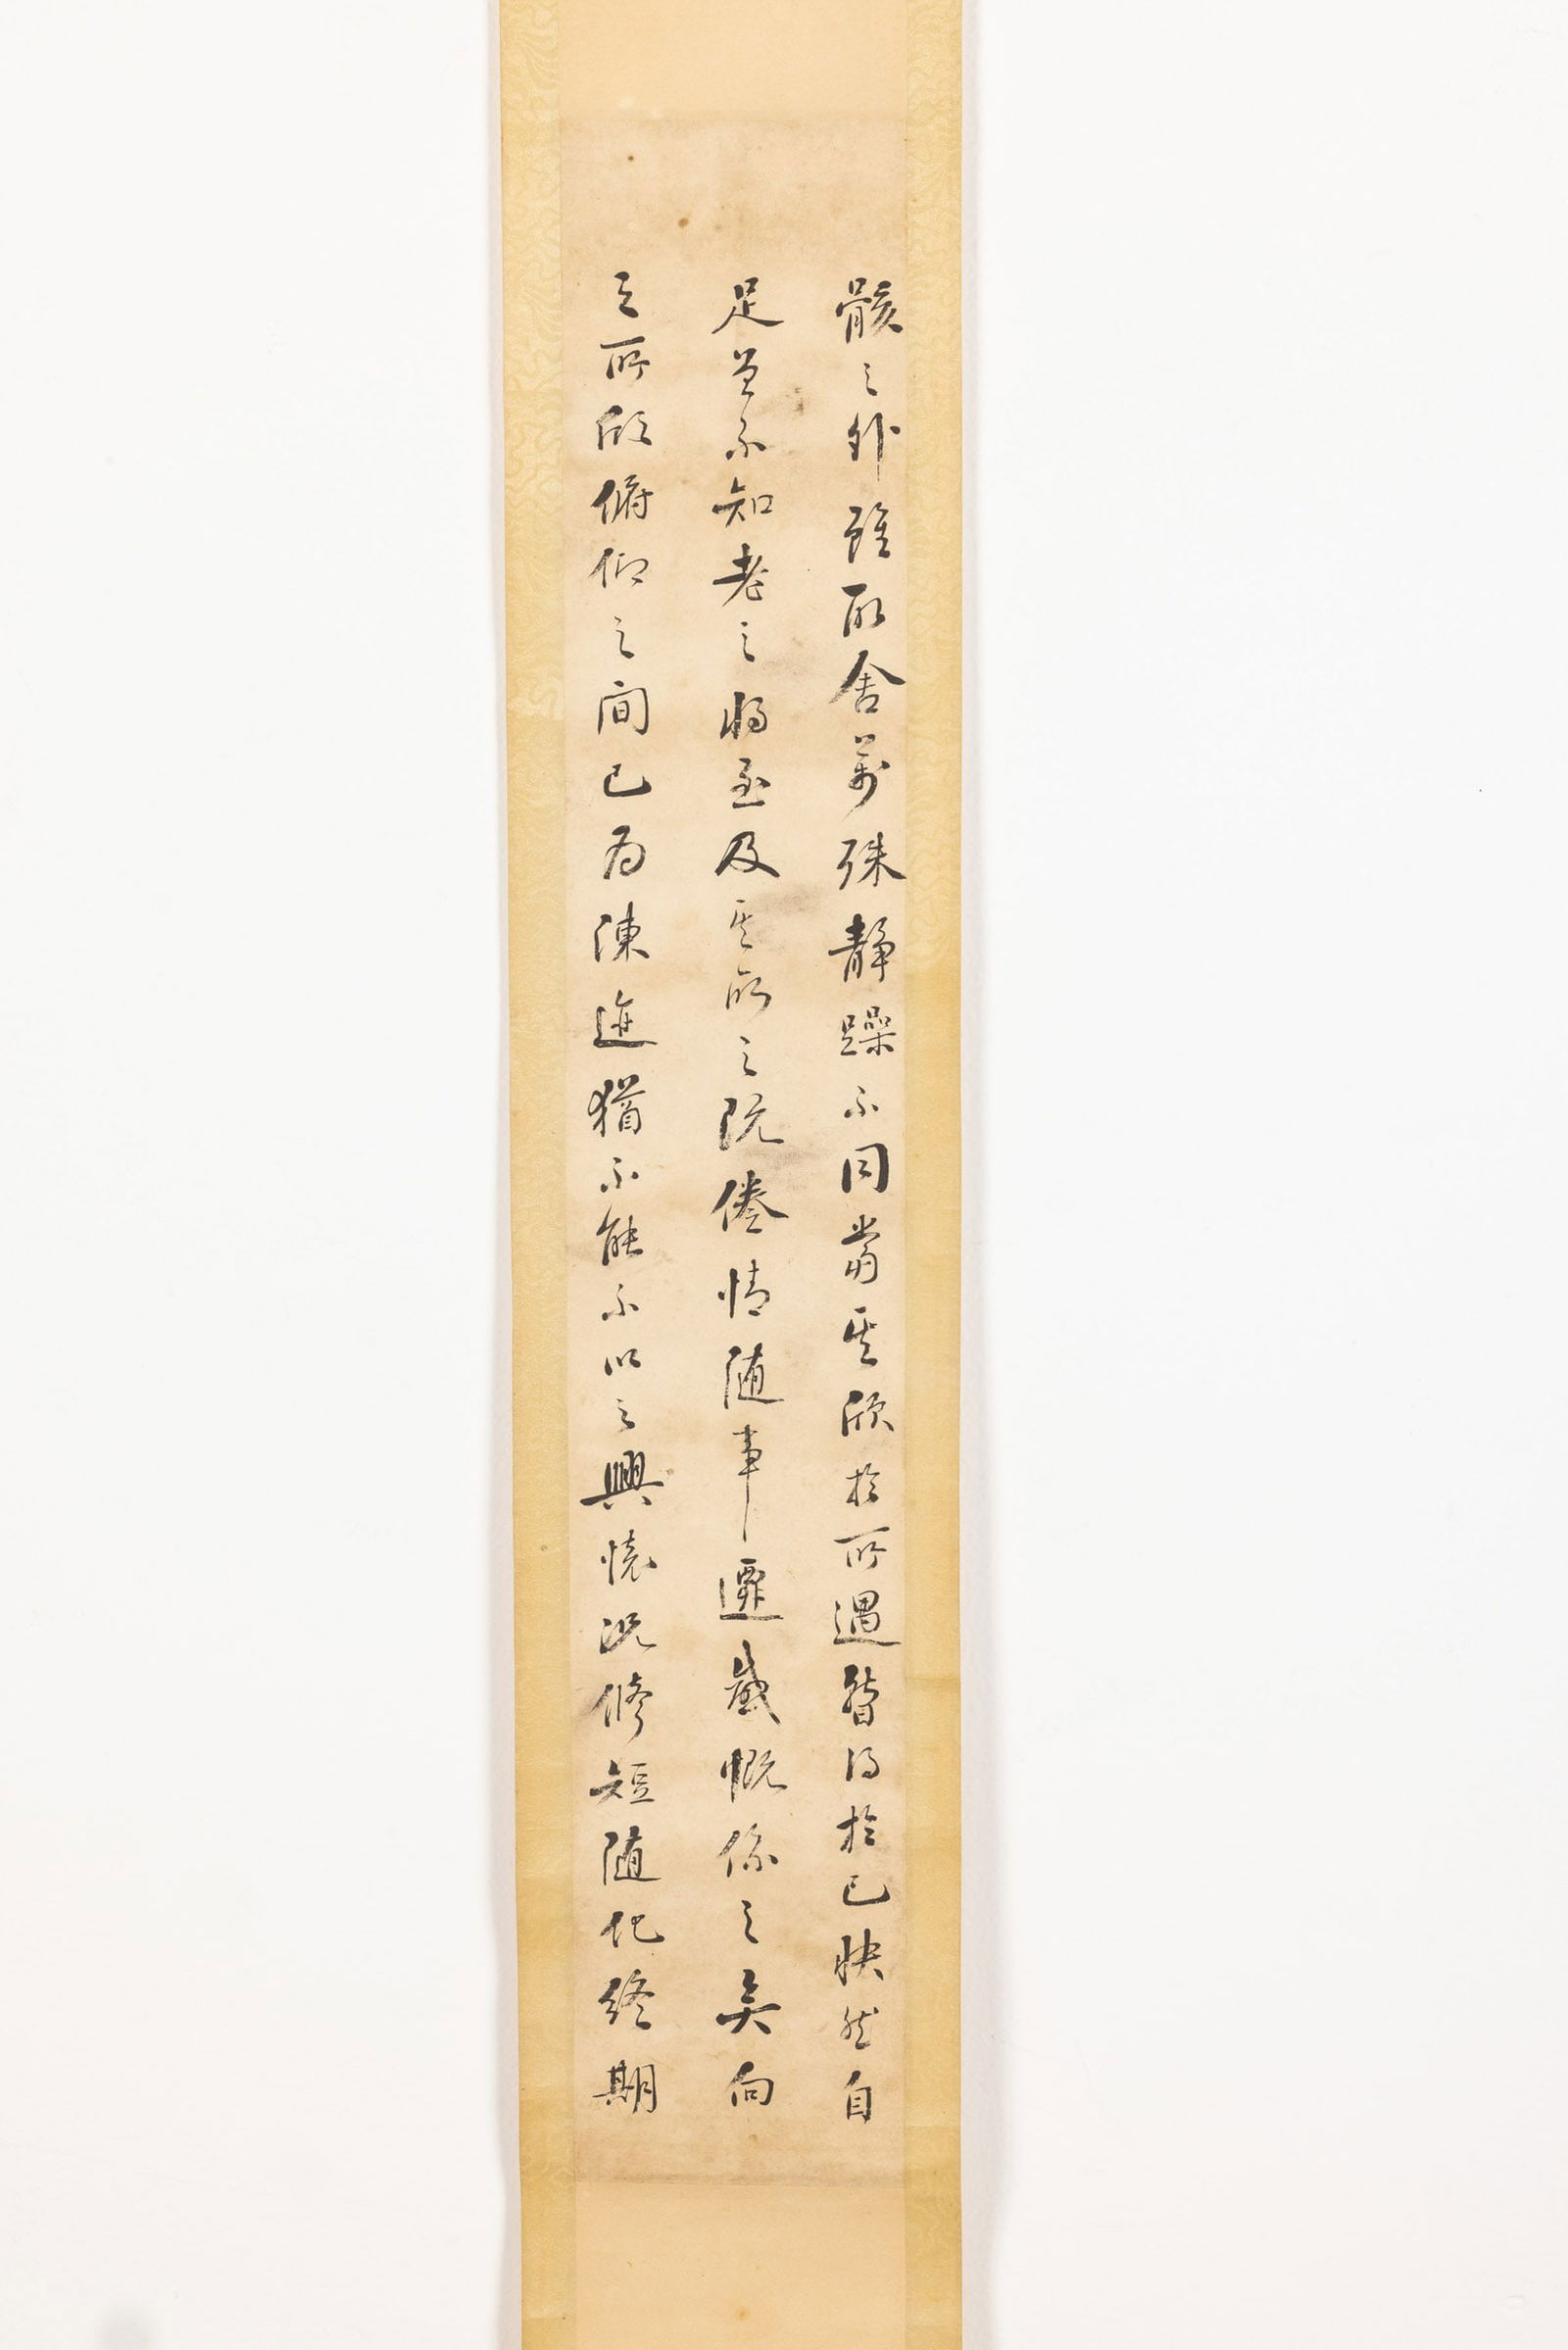 骸之外雖取舍萬殊静躁不同當其欣於所遇暫得於己快然自
足曾不知老之將至及其所之既倦情随事遷感慨係之矣向
之所欣俯仰之間已為陳迹猶不能不以之興懷況修短随化終期